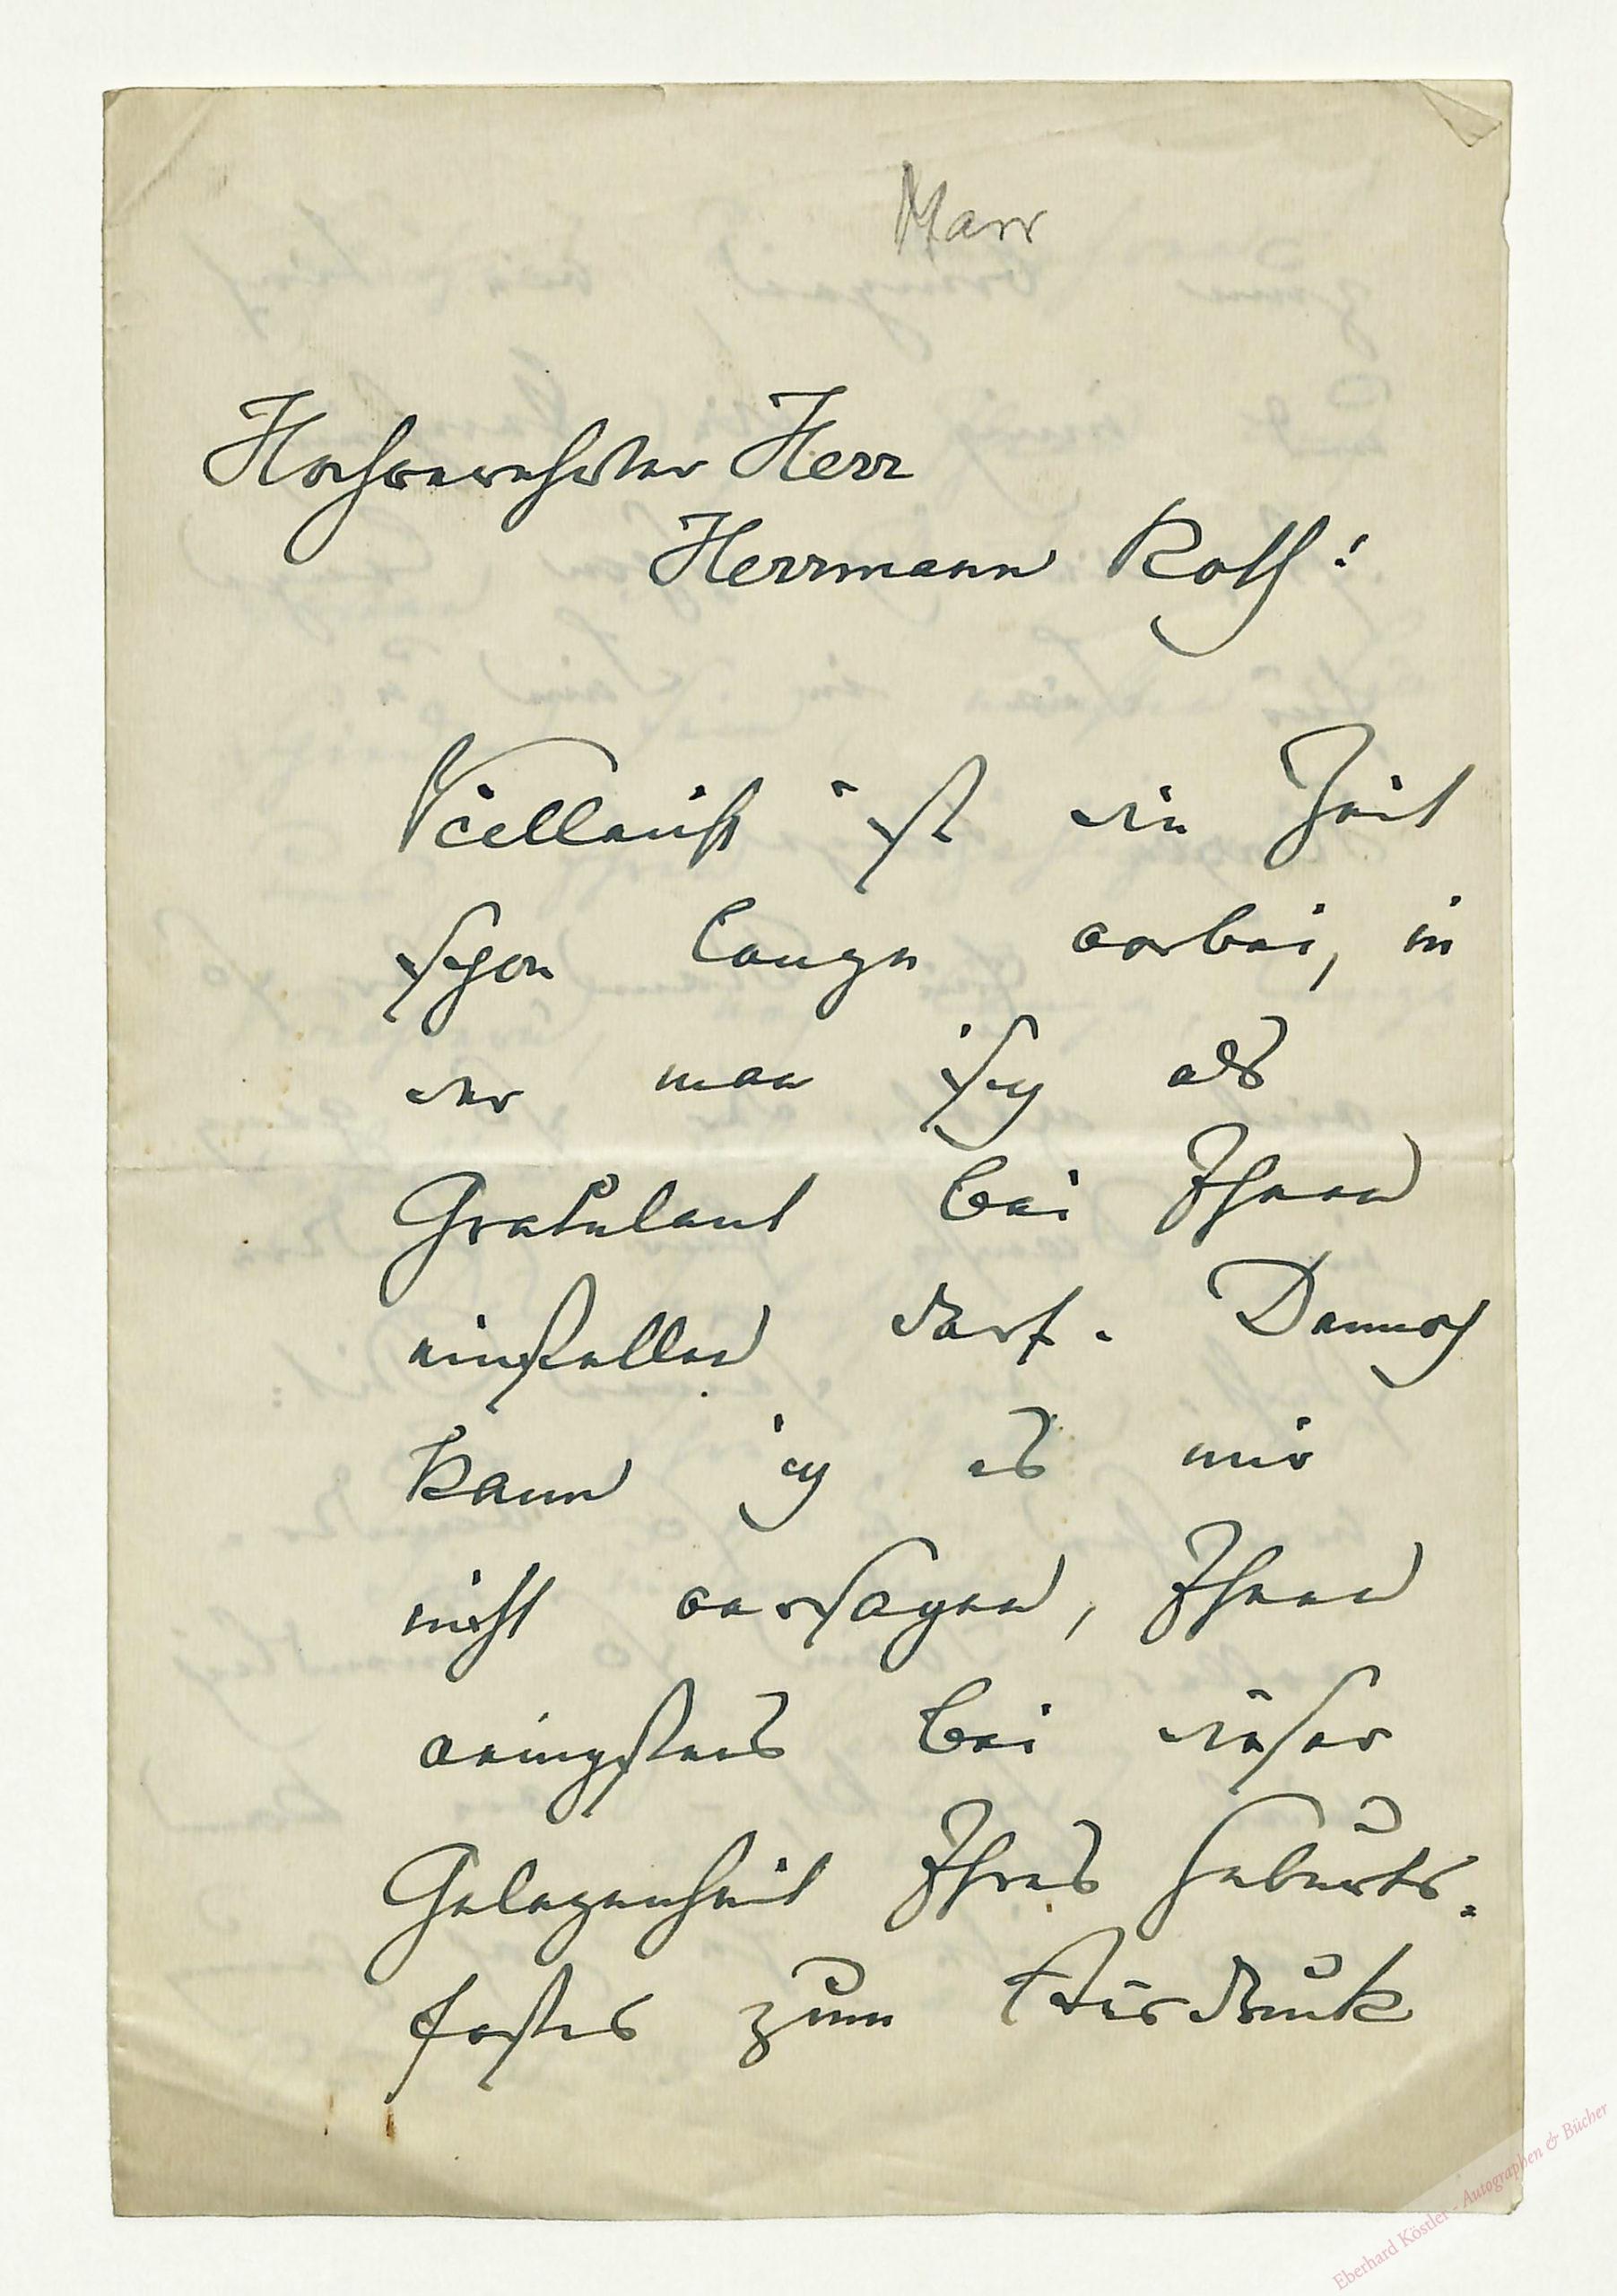 Marr
Hochverehrter Herr
Herrmann Roth!
Vielleicht ist die Zeit
schon lange vorbei, in
der man sich als
Gratulant bei Ihnen
einstellen darf. Dennoch
kann ich es mir
nicht versagen, Ihnen
wenigstens bei dieser
Gelegenheit Ihres Geburts-
festes zum Ausdruck
Eberhard Köstler - Autographen & Bücher